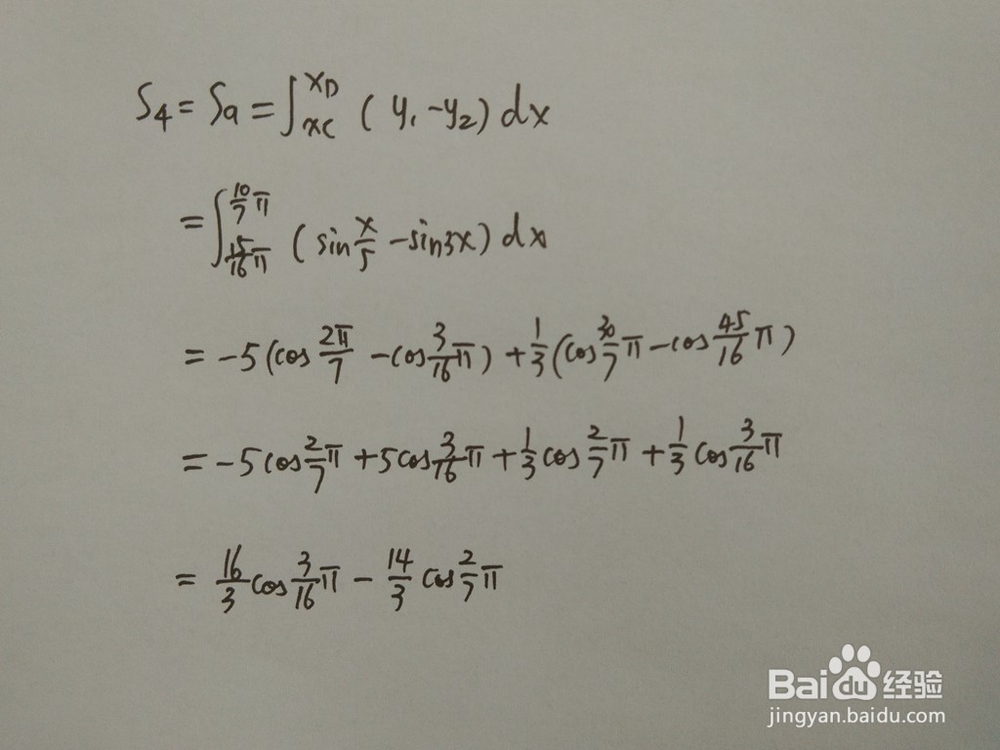 S₄ = S₉ = ∫_{xC}^{xD} (y₁ - y₂) dx
= ∫_{15/16 π}^{10/7 π} (sin x/5 - sin3x) dx
= -5(cos 2π/7 - cos 3/16 π) + 1/3 (cos 30/7 π - cos 45/16 π)
= -5cos 2/7 π + 5cos 3/16 π + 1/3 cos 2/7 π + 1/3 cos 3/16 π
= 16/3 cos 3/16 π - 14/3 cos 2/7 π
Baidu 经验
jingyan.baidu.com